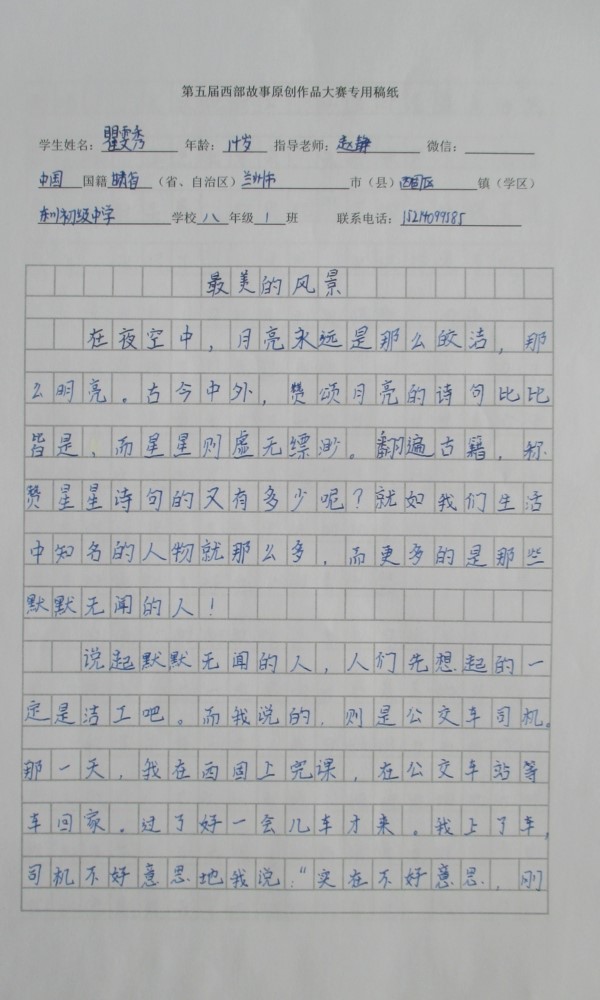 第五届西部故事原创作品大赛专用稿纸
学生姓名：瞿雯秀 年龄：14岁 指导老师：赵静 微信：
中国 国籍 甘肃省（省、自治区）兰州市 市（县）西固区 镇（学区）
东川初级中学 学校 八 年级 1 班 联系电话：
最美的风景
在夜空中，月亮永远是那么皎洁，那
么明亮。古今中外，赞颂月亮的诗句比比
皆是，而星星则虚无缥渺。翻遍古籍，称
赞星星诗句的又有多少呢？就如我们生活
中知名的人物就那么多，而更多的是那些
默默无闻的人！
说起默默无闻的人，人们先想起的一
定是洁工吧。而我说的，则是公交车司机。
那一天，我在西固上完课，在公交车站等
车回家。过了好一会儿车才来。我上了车，
司机不好意思地我说：“实在不好意思，刚